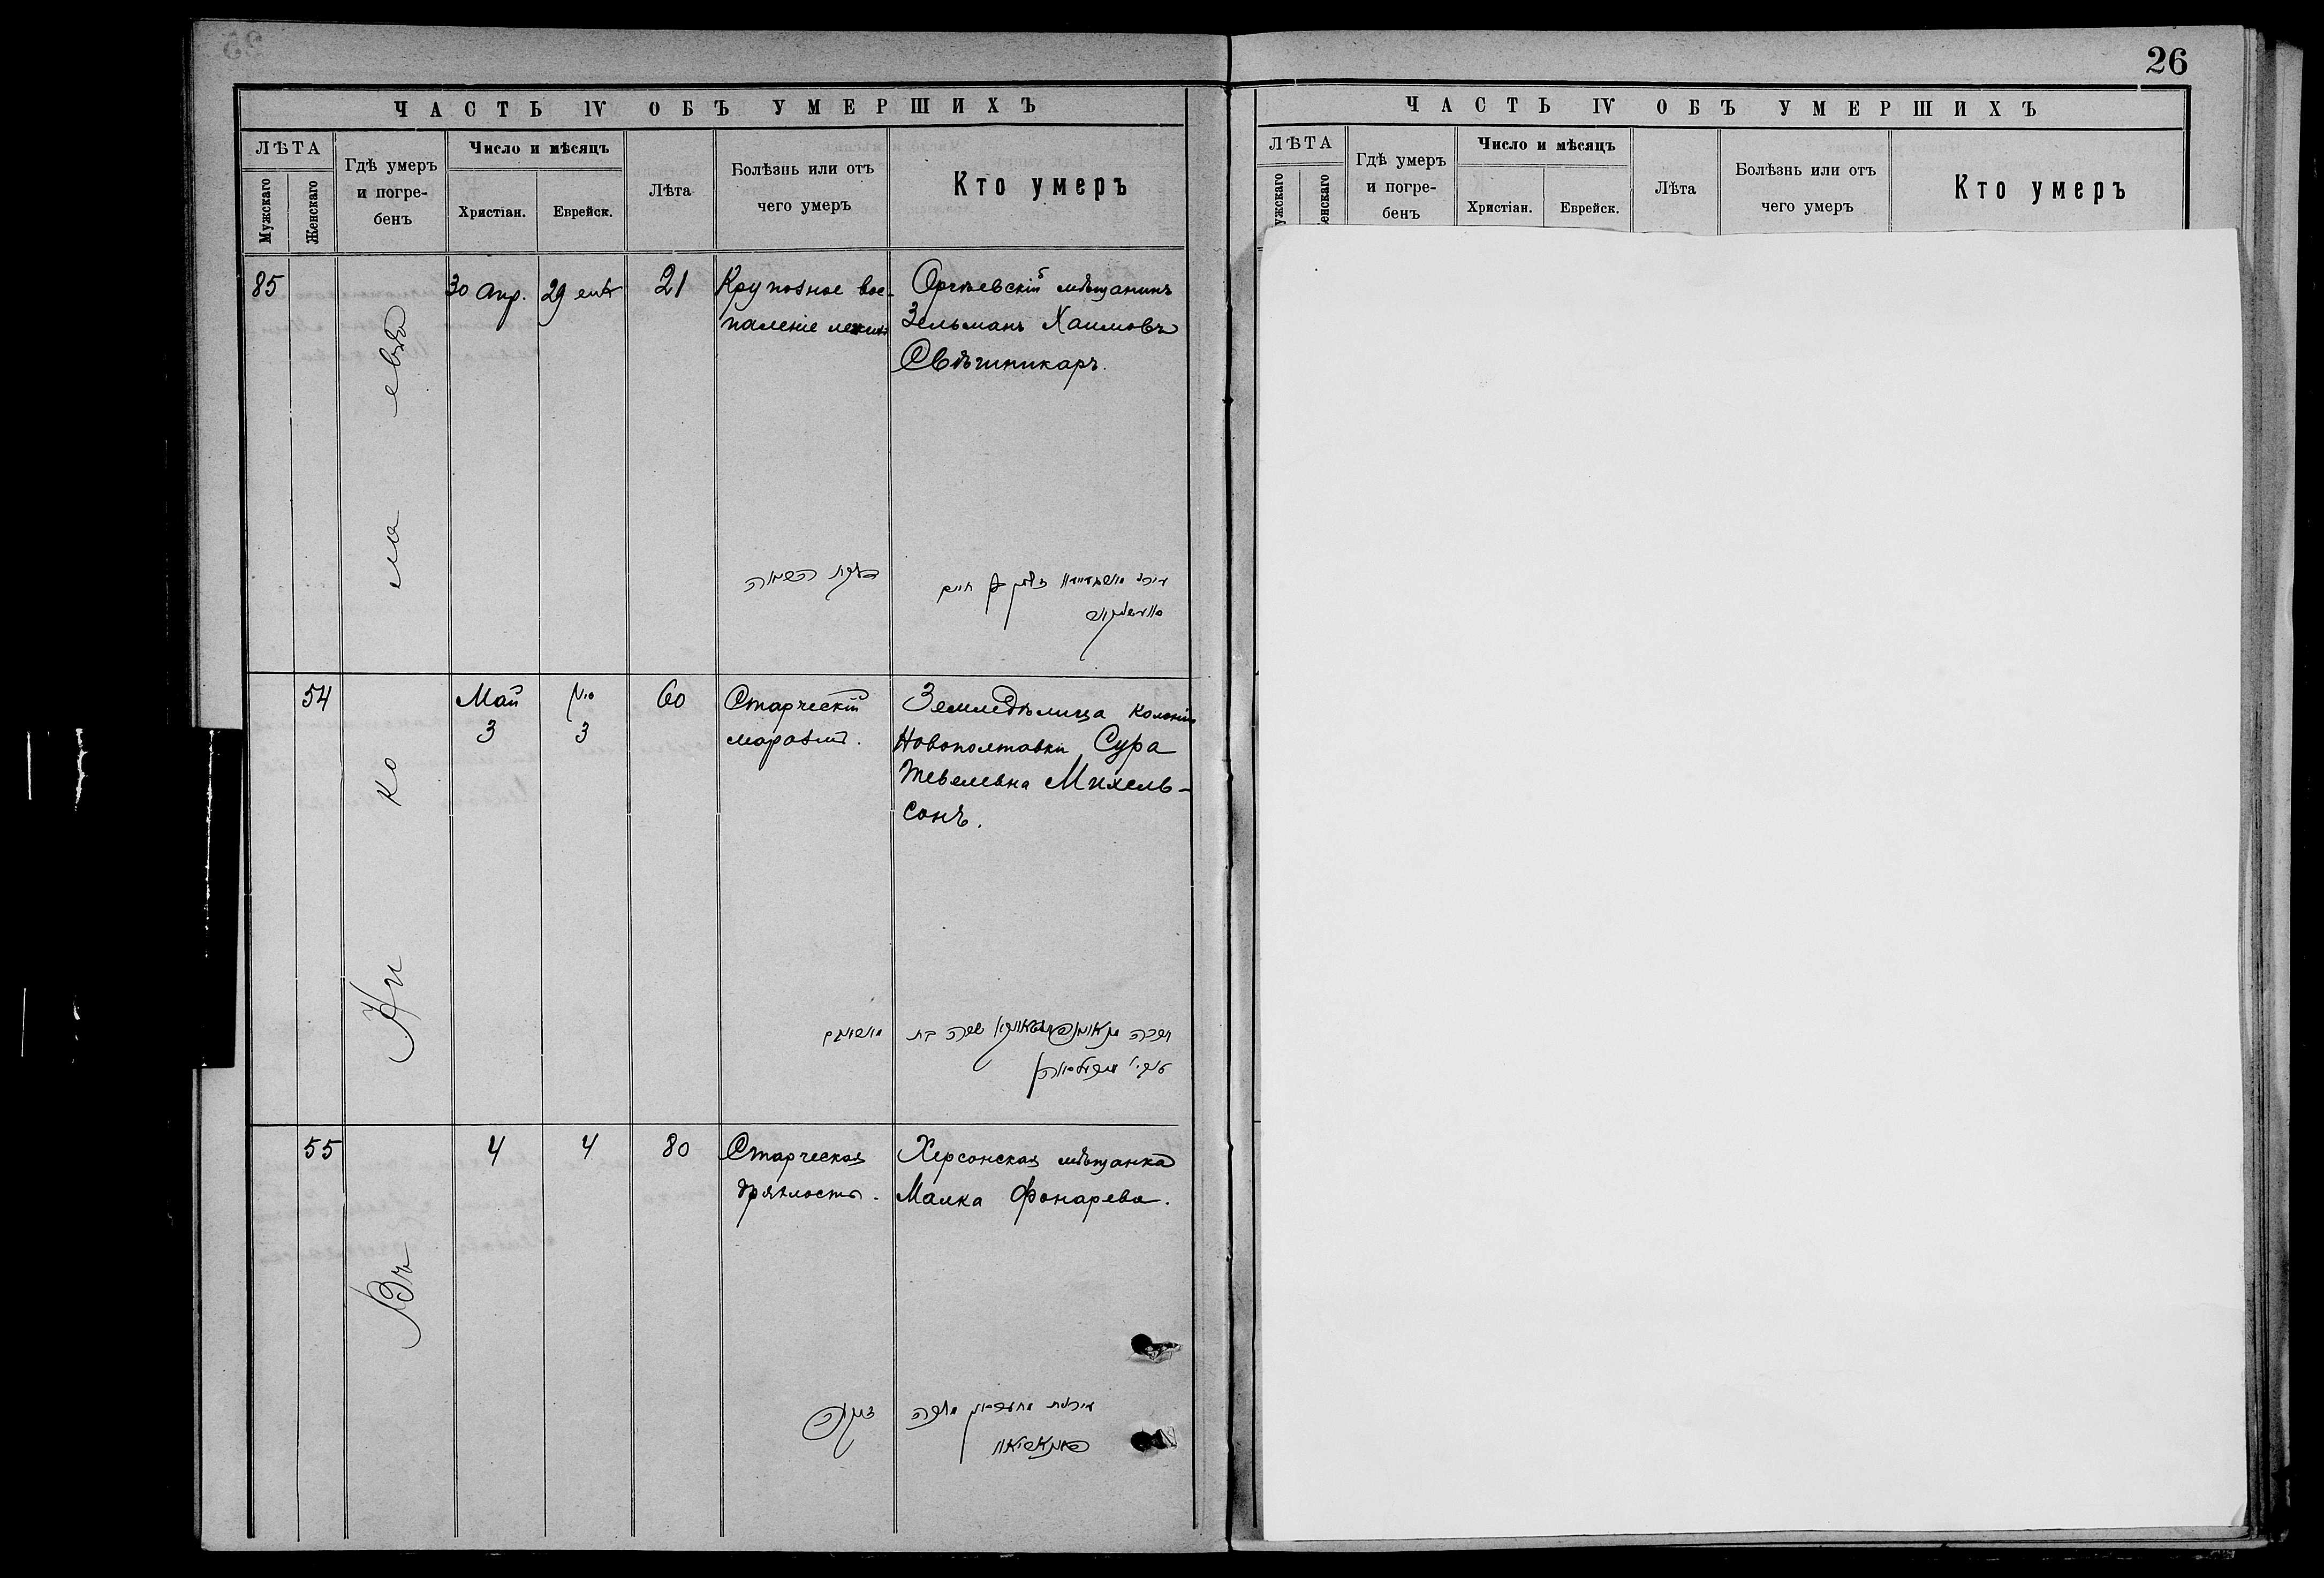 26
ЧАСТЬ IV ОБЪ УМЕРШИХЪ
ЛѢТА
Мужскаго
Женскаго
Гдѣ умеръ
и погре-
бенъ
Число и мѣсяцъ
Христіан.
Еврейск.
Лѣта
Болѣзнь или отъ
чего умеръ
Кто умеръ
85
30 Апр.
29
21
Крупозное вос-
паленіе легкихъ
Оргѣевскій мѣщанинъ
Зельманъ Хаимовъ
חיים
54
Май
3
3
60
Старческій
маразмъ.
Земледѣлица колоніи
Новополтавки Сура
Тевелевна Михель-
сонъ.
שרה בת
55
4
4
80
Старческая
дряхлость.
Херсонская мѣщанка
Малка Фонарева.
זקנה
מלכה
Въ Николаевѣ
ЧАСТЬ IV ОБЪ УМЕРШИХЪ
ЛѢТА
ужскаго
енскаго
Гдѣ умеръ
и погре-
бенъ
Число и мѣсяцъ
Христіан.
Еврейск.
Лѣта
Болѣзнь или отъ
чего умеръ
Кто умеръ